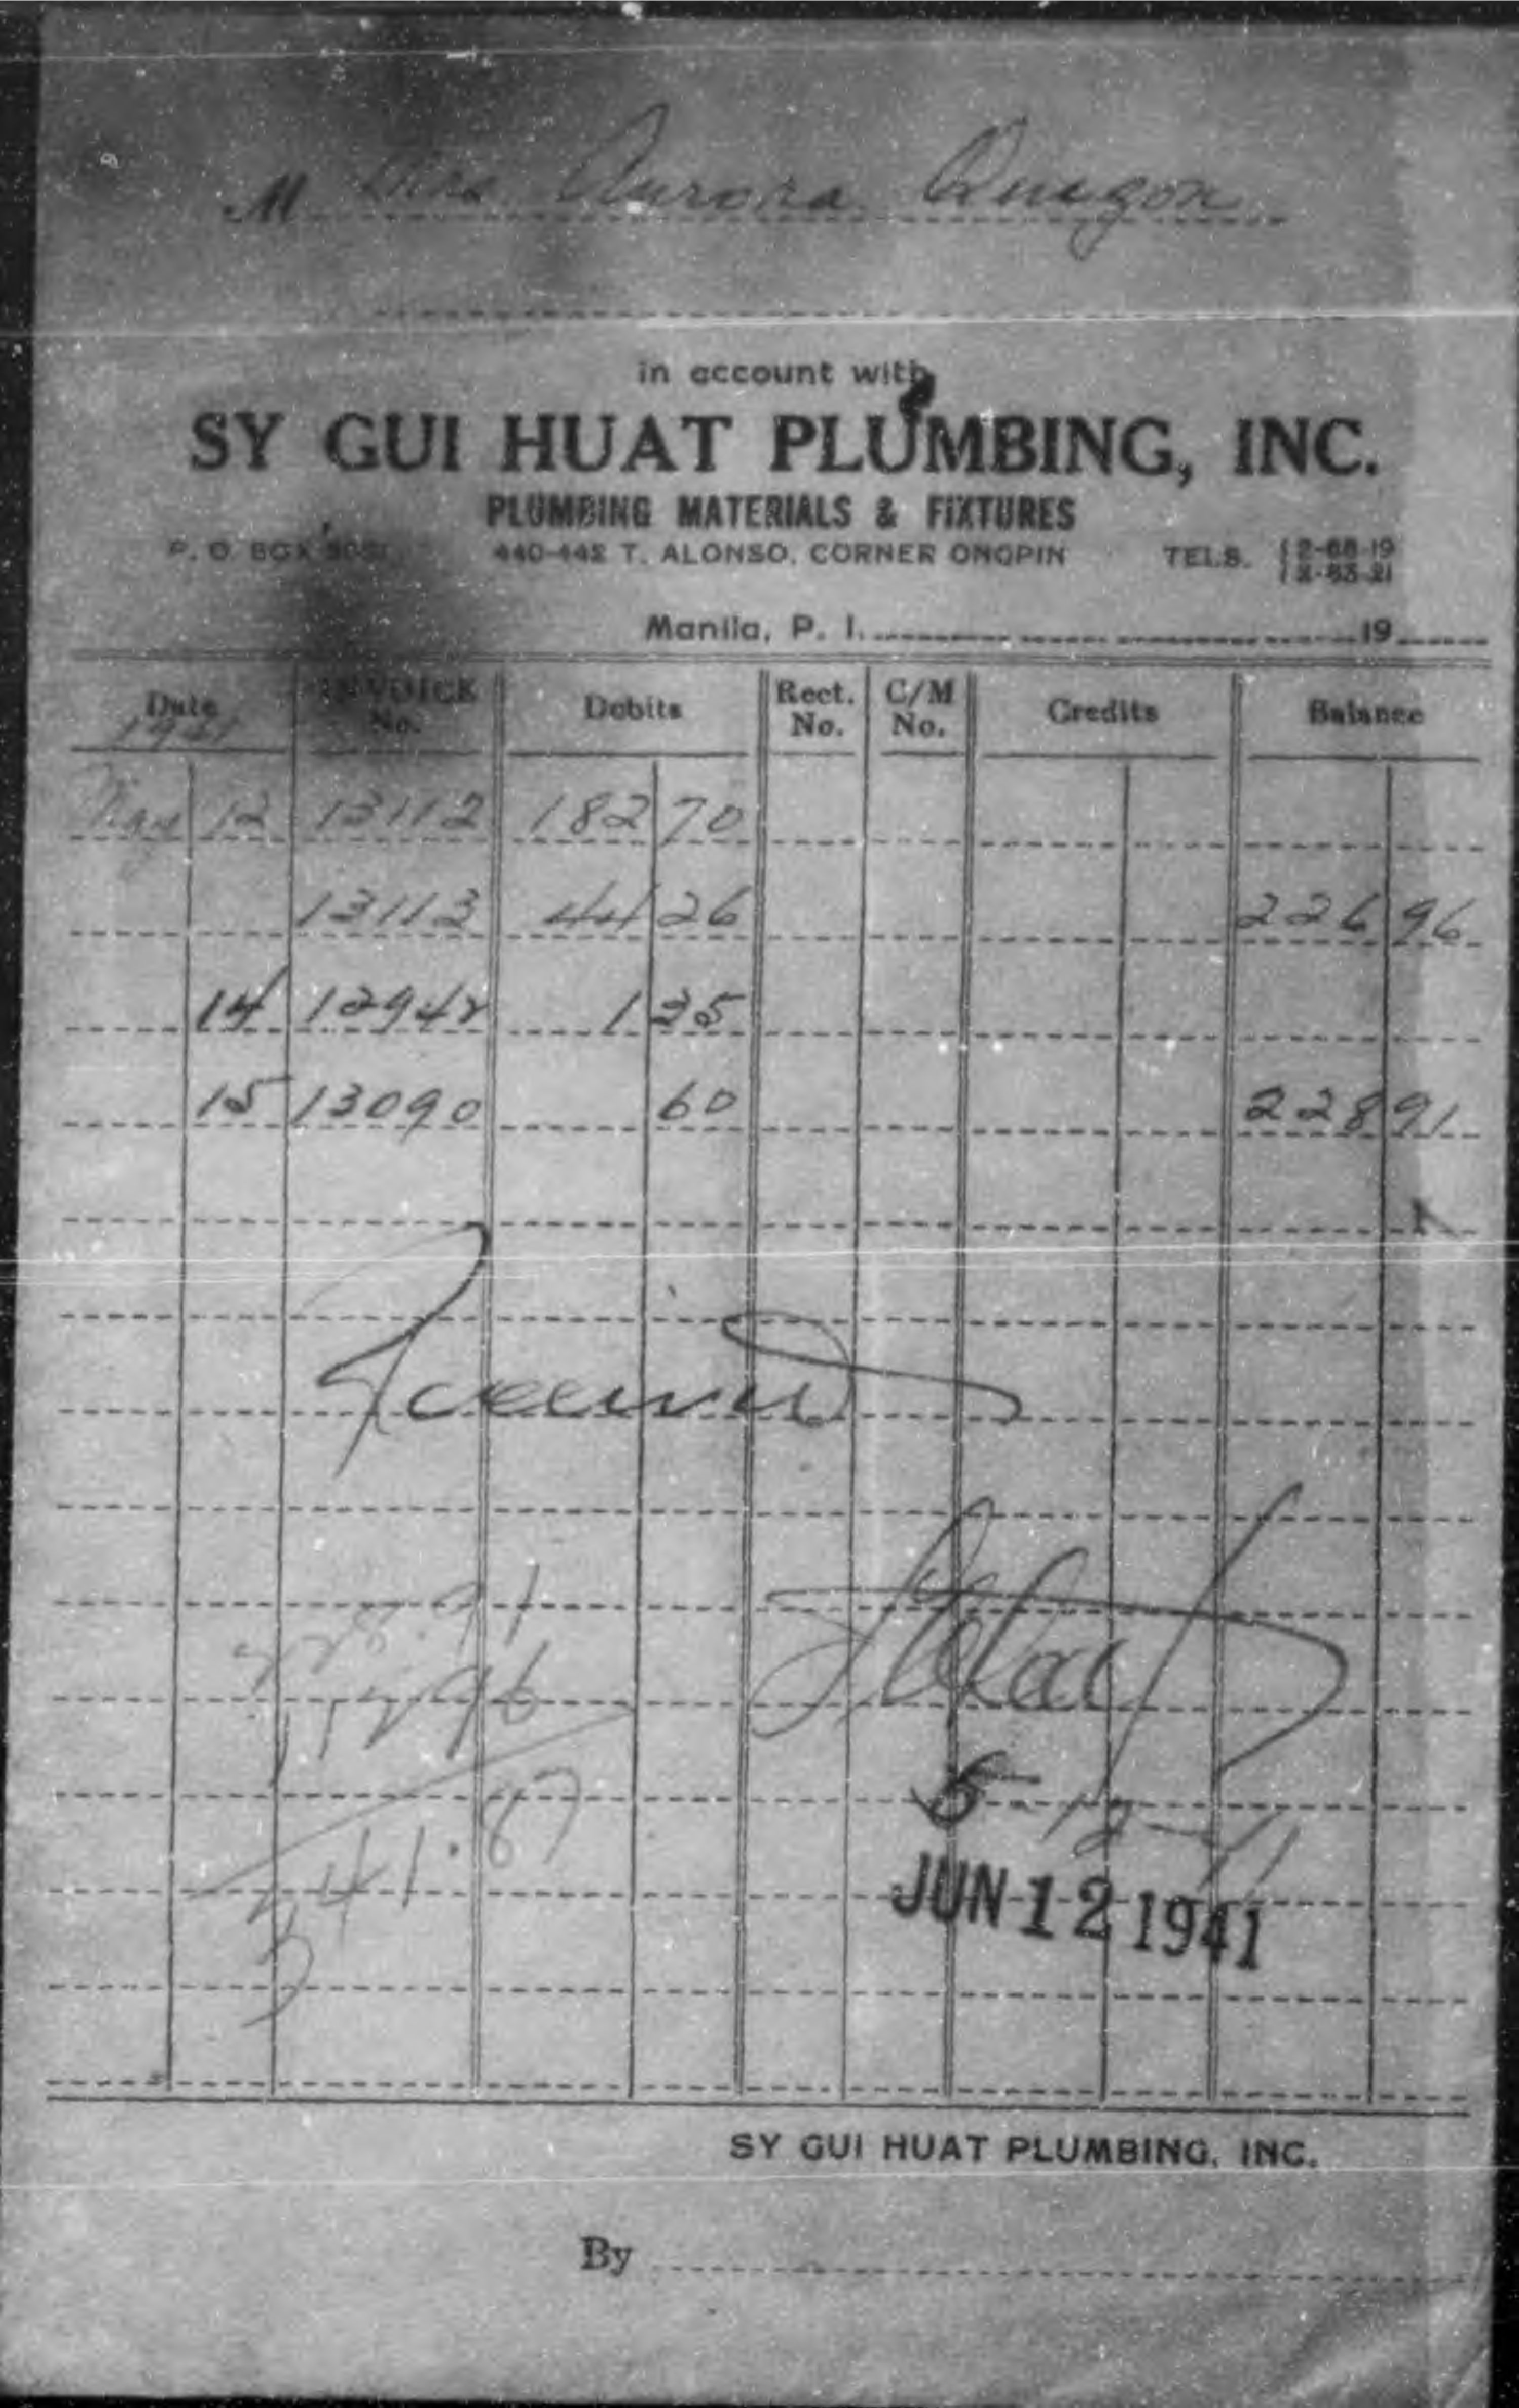 M Mrs. Aurora Quezon
in account with
SY GUI HUAT PLUMBING, INC.
PLUMBING MATERIALS & FIXTURES
P. O. BOX 440-442 T. ALONSO, CORNER ONGPIN TELS. 2-68-19
2-53-21
Manila, P. I. 19
Date INVOICE No. Debits Rect. No. C/M No. Credits Balance
1941
May 12 13112 182 70
13113 44 26 226 96
14 12942 1 35
15 13090 60 228 91
Received
228.91
96
341.87
6-12-41
JUN 12 1941
SY GUI HUAT PLUMBING, INC.
By